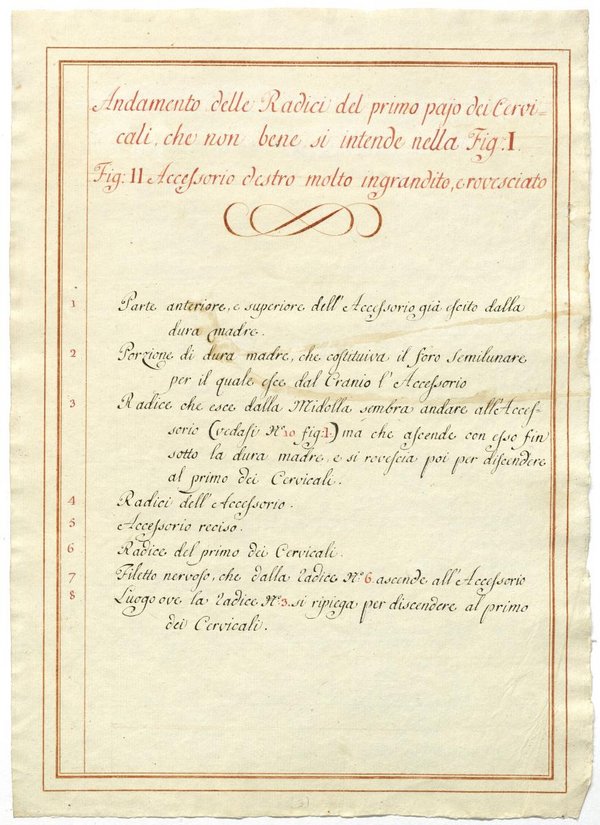 Andamento delle Radici del primo pajo dei Cervi=
cali, che non bene si intende nella Fig: I.
Fig: II Accessorio destro molto ingrandito, e rovesciato
1 Parte anteriore, e superiore dell'Accessorio già escito dalla
dura madre.
2 Porzione di dura madre, che costituiva il foro Semilunare
per il quale esce dal Cranio l'Accessorio
3 Radice che esce dalla Midolla sembra andare all'Acces-
sorio (vedasi N.º 10 fig: I.) ma che ascende con esso fin
sotto la dura madre, e si rovescia poi per discendere
al primo dei Cervicali.
4 Radici dell'Accessorio.
5 Accessorio reciso.
6. Radice del primo dei Cervicali.
7 Filetto nervoso, che dalla radice N.º 6. ascende all'Accessorio
8 Luogo ove la radice N.º 3. si ripiega per discendere al primo
dei Cervicali.